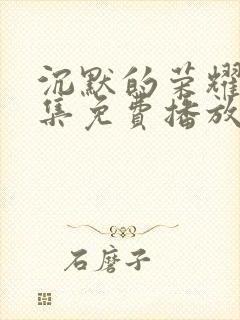 沉默的荣耀
集免費播放
石磨子